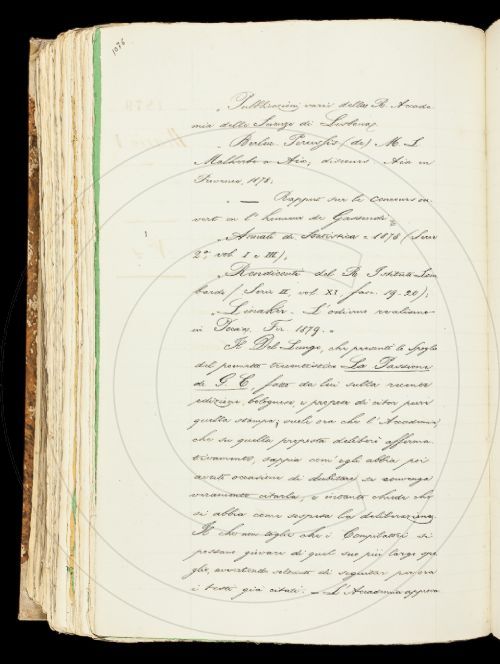 1076
„Pubblicazioni varie della R. Accade-
mia delle Scienze di Lisbona;
„Berluc Perussis (de) M. L.
Malherbe a Aix, discours Aix en
Provence, 1878;
„ — Rapport sur le Concours ou-
vert en l'honneur de Gassendi;
„Annali di Statistica — 1878 (Serie
2ª vol. I e III);
„Rendiconti del R. Istituto Lom-
bardo, Serie II, vol. XI, fasc. 19-20);
„Linaker — L'odierno realismo
in Toscana. Fir. 1879. „
Il Del Lungo, che presentò lo spoglio
del poemetto trecentistico La Passione
di G. C., fatto da lui sulla recente
edizione bolognese e proposta di citar pure
quella stampa, vuole ora che l'Accademia,
che su quella proposta deliberò afferma-
tivamente, sappia com'egli abbia poi
avuto occasione di dubitare se convenga
veramente citarla, e intanto chiede che
si abbia come sospesa la deliberazione.
Il che non toglie che i Compilatori si
possano giovare di quel suo più largo spo-
glio, avvertendo soltanto di seguitar per ora
i testi già citati. — L'Accademia approva